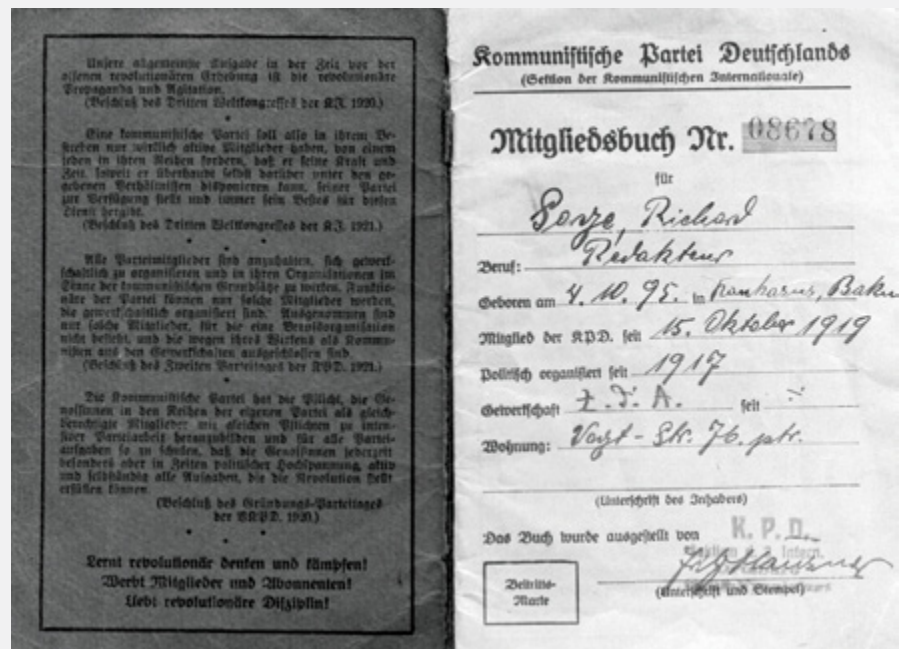 Unsere allgemeinste Aufgabe in der Zeit vor der
offenen revolutionären Erhebung ist die revolutionäre
Propaganda und Agitation.
(Beschluß des Dritten Weltkongresses der K.J. 1920.)
Eine kommunistische Partei soll also in ihrem Be-
streben nur wirklich aktive Mitglieder haben, von einem
jeden in ihren Reihen fordern, daß er seine Kraft und
Zeit, soweit er überhaupt selbst darüber unter den ge-
gebenen Verhältnissen disponieren kann, seiner Partei
zur Verfügung stellt und immer sein Bestes für diesen
Dienst hergibt.
(Beschluß des Dritten Weltkongresses der K.J. 1921.)
Alle Parteimitglieder sind anzuhalten, sich gewerk-
schaftlich zu organisieren und in ihren Organisationen im
Sinne der kommunistischen Grundsätze zu wirken. Funktio-
näre der Partei können nur solche Mitglieder werden,
die gewerkschaftlich organisiert sind. Ausgenommen sind
nur solche Mitglieder, für die eine Berufsorganisation
nicht besteht, und die wegen ihres Wirkens als Kommu-
nisten aus den Gewerkschaften ausgeschlossen sind.
(Beschluß des Zweiten Parteitages der KPD. 1921.)
Die Kommunistische Partei hat die Pflicht, die Ge-
nossinnen in den Reihen der eigenen Partei als gleich-
berechtigte Mitglieder mit gleichen Pflichten zu inten-
siver Parteiarbeit heranzubilden und für alle Partei-
aufgaben so zu schulen, daß die Genossinnen jederzeit
besonders aber in Zeiten politischer Hochspannung, aktiv
und selbständig alle Aufgaben, die die Revolution stellt
erfüllen können.
(Beschluß des Gründungs-Parteitages
der VKPD. 1920.)
Lernt revolutionär denken und kämpfen!
Werbt Mitglieder und Abonnenten!
Liebt revolutionäre Disziplin!
Kommunistische Partei Deutschlands
(Sektion der Kommunistischen Internationale)
Mitgliedsbuch Nr. 08678
für
Sorge, Richard
Beruf: Redakteur
Geboren am 4. 10. 95. in Kaukasus, Baku
Mitglied der KPD. seit 15. Oktober 1919
Politisch organisiert seit 1917
Gewerkschaft Z. d. A. seit
Wohnung: Vogt-Str. 76. ptr.
(Unterschrift des Inhabers)
Das Buch wurde ausgestellt von K. P. D.
Sektion d. 3. Intern.
(Unterschrift und Stempel)
Beitritts-
Marke